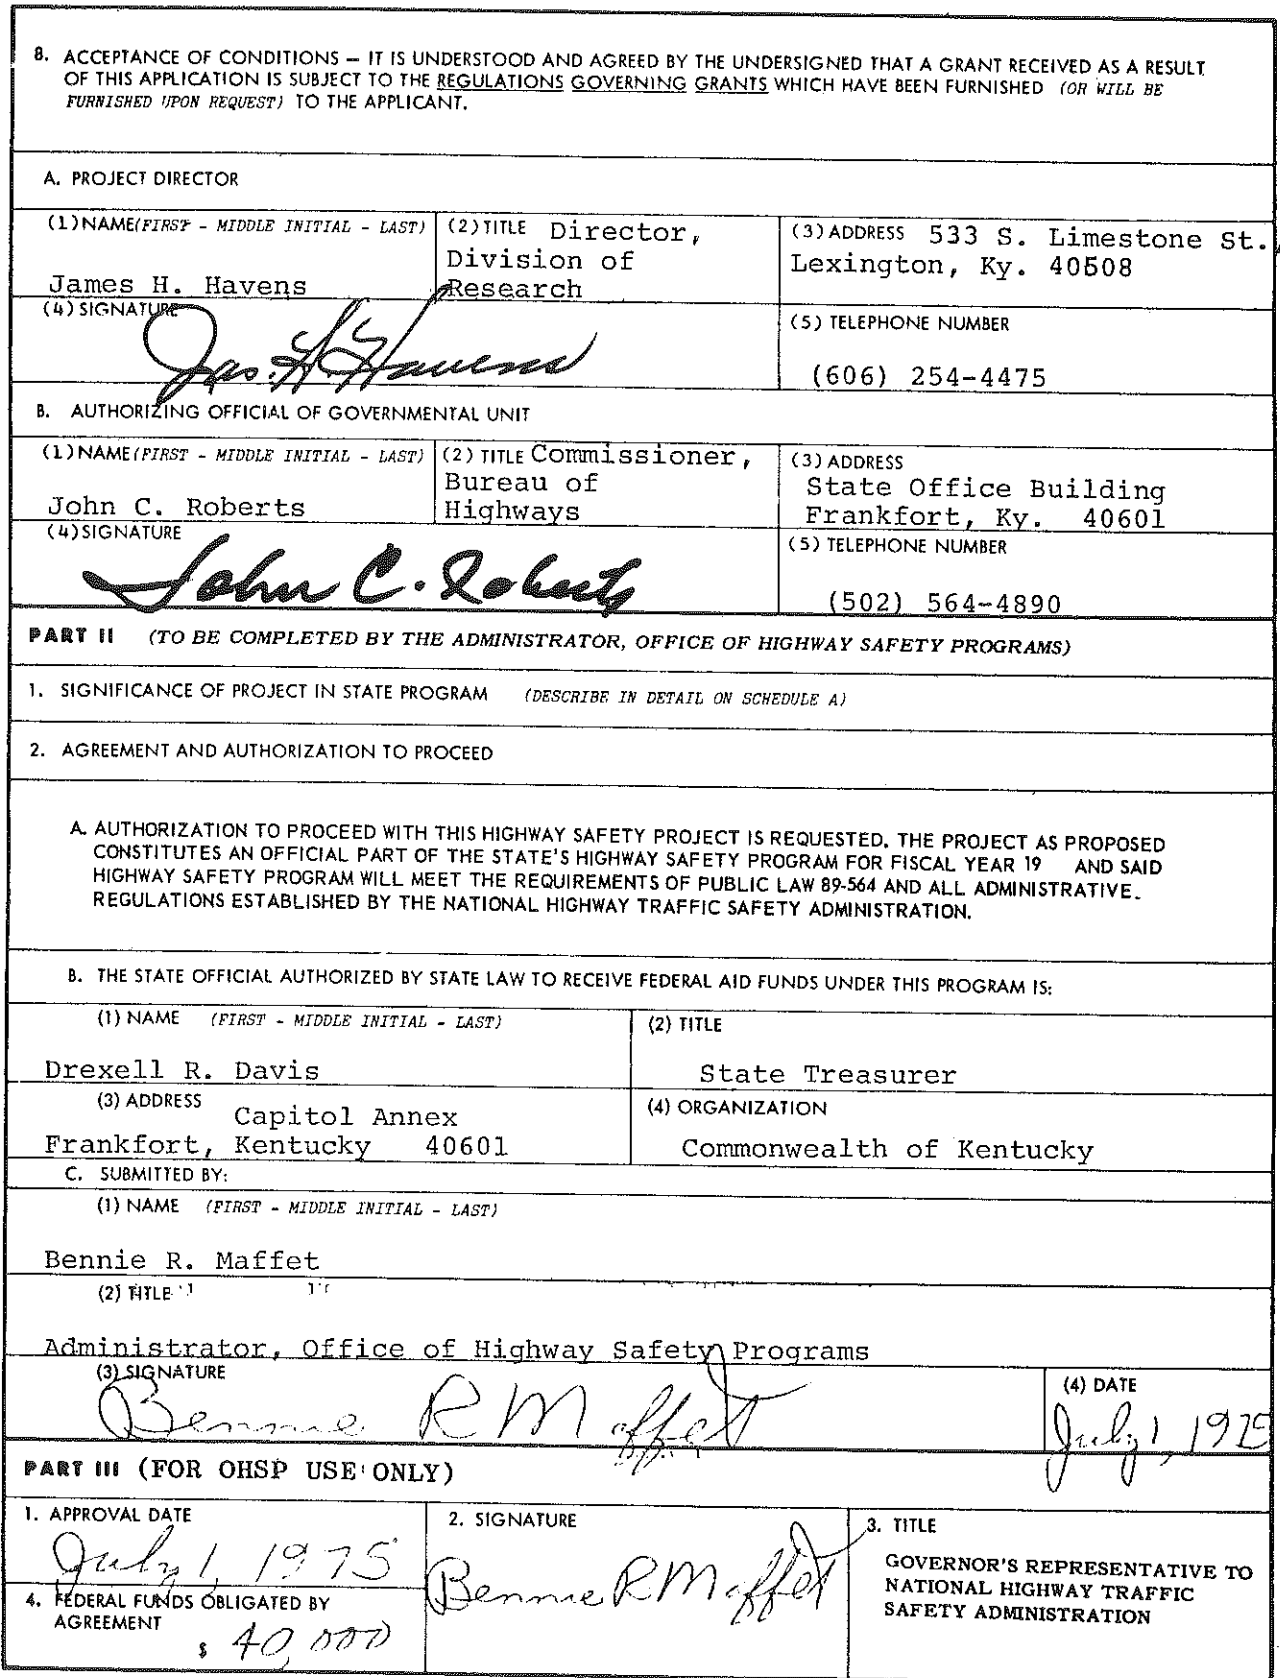 8. ACCEPTANCE OF CONDITIONS – IT IS UNDERSTOOD AND AGREED BY THE UNDERSIGNED THAT A GRANT RECEIVED AS A RESULT
OF THIS APPLICATION IS SUBJECT TO THE REGULATIONS GOVERNING GRANTS WHICH HAVE BEEN FURNISHED (OR WILL BE
FURNISHED UPON REQUEST) TO THE APPLICANT.
A. PROJECT DIRECTOR
(1) NAME (FIRST - MIDDLE INITIAL - LAST)
James H. Havens
(2) TITLE Director,
Division of
Research
(3) ADDRESS 533 S. Limestone St.,
Lexington, Ky. 40508
(4) SIGNATURE
Jas. H. Havens
(5) TELEPHONE NUMBER
(606) 254-4475
B. AUTHORIZING OFFICIAL OF GOVERNMENTAL UNIT
(1) NAME (FIRST - MIDDLE INITIAL - LAST)
John C. Roberts
(2) TITLE Commissioner,
Bureau of
Highways
(3) ADDRESS
State Office Building
Frankfort, Ky. 40601
(4) SIGNATURE
John C. Roberts
(5) TELEPHONE NUMBER
(502) 564-4890
PART II (TO BE COMPLETED BY THE ADMINISTRATOR, OFFICE OF HIGHWAY SAFETY PROGRAMS)
1. SIGNIFICANCE OF PROJECT IN STATE PROGRAM (DESCRIBE IN DETAIL ON SCHEDULE A)
2. AGREEMENT AND AUTHORIZATION TO PROCEED
A. AUTHORIZATION TO PROCEED WITH THIS HIGHWAY SAFETY PROJECT IS REQUESTED. THE PROJECT AS PROPOSED
CONSTITUTES AN OFFICIAL PART OF THE STATE'S HIGHWAY SAFETY PROGRAM FOR FISCAL YEAR 19 AND SAID
HIGHWAY SAFETY PROGRAM WILL MEET THE REQUIREMENTS OF PUBLIC LAW 89-564 AND ALL ADMINISTRATIVE.
REGULATIONS ESTABLISHED BY THE NATIONAL HIGHWAY TRAFFIC SAFETY ADMINISTRATION.
B. THE STATE OFFICIAL AUTHORIZED BY STATE LAW TO RECEIVE FEDERAL AID FUNDS UNDER THIS PROGRAM IS:
(1) NAME (FIRST - MIDDLE INITIAL - LAST)
Drexell R. Davis
(2) TITLE
State Treasurer
(3) ADDRESS
Capitol Annex
Frankfort, Kentucky 40601
(4) ORGANIZATION
Commonwealth of Kentucky
C. SUBMITTED BY:
(1) NAME (FIRST - MIDDLE INITIAL - LAST)
Bennie R. Maffet
(2) TITLE
Administrator, Office of Highway Safety Programs
(3) SIGNATURE
Bennie R Maffet
(4) DATE
July 1, 1975
PART III (FOR OHSP USE ONLY)
1. APPROVAL DATE
July 1, 1975
2. SIGNATURE
Bennie R Maffet
3. TITLE
GOVERNOR'S REPRESENTATIVE TO
NATIONAL HIGHWAY TRAFFIC
SAFETY ADMINISTRATION
4. FEDERAL FUNDS OBLIGATED BY
AGREEMENT
$ 40,000